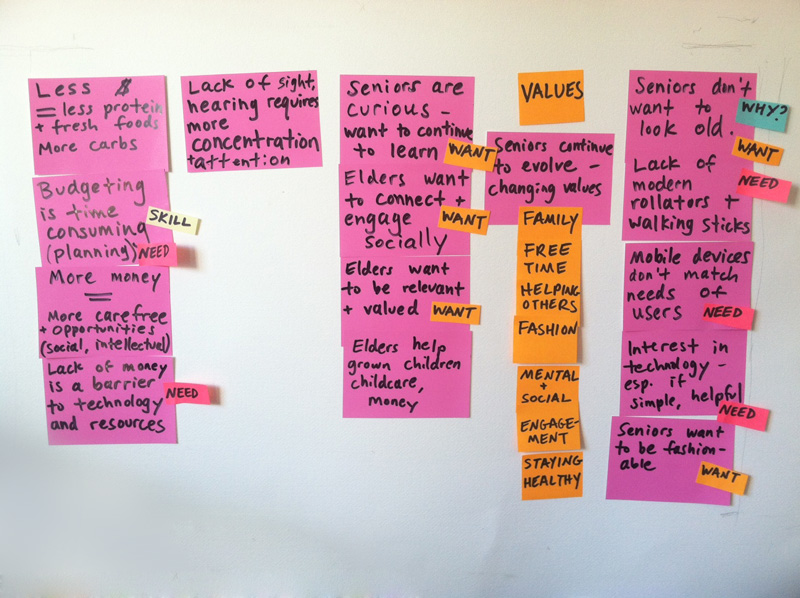 Less $
= less protein
+ fresh foods
More carbs
Budgeting
is time
consuming
(planning)
SKILL
NEED
More money
=
More carefree
+ opportunities
(social, intellectual)
Lack of money
is a barrier
to technology
and resources
NEED
Lack of sight,
hearing requires
more
concentration
+ attention
Seniors are
curious –
want to continue
to learn
WANT
Elders want
to connect +
engage
socially
WANT
Elders want
to be relevant
+ valued
WANT
Elders help
grown children
childcare,
money
VALUES
Seniors continue
to evolve –
changing values
FAMILY
FREE
TIME
HELPING
OTHERS
FASHION
MENTAL
+
SOCIAL
ENGAGE-
MENT
STAYING
HEALTHY
Seniors don't
want to
look old.
WHY?
WANT
Lack of
modern
rollators +
walking sticks
NEED
Mobile devices
don't match
needs of
users
NEED
Interest in
technology –
esp. if
simple, helpful
NEED
Seniors want
to be fashion-
able
WANT